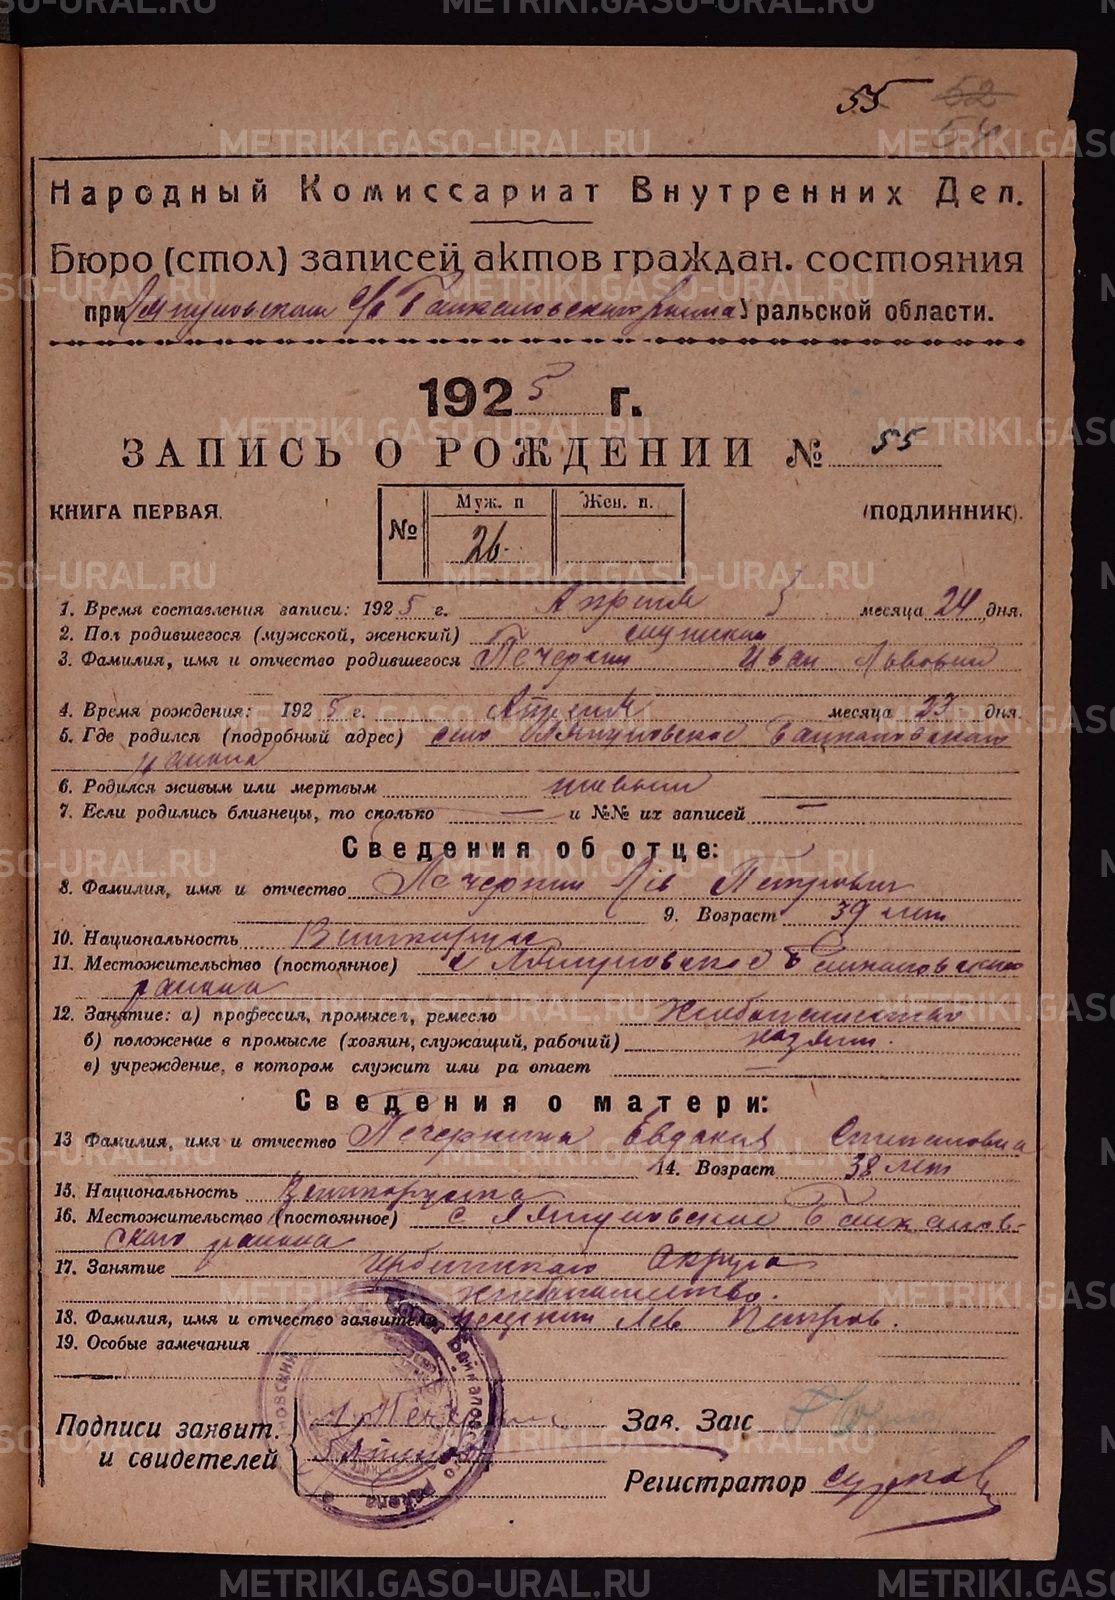 55 52
54
Народный Комиссариат Внутренних Дел.
Бюро (стол) записей актов граждан. состояния
при Ляпуновском с/с Байкаловского района Уральской области.
1925 г.
ЗАПИСЬ О РОЖДЕНИИ № 55
КНИГА ПЕРВАЯ. (ПОДЛИННИК).
№ Муж. п Жен. п.
26.
1. Время составления записи: 1925 г. Апреля месяца 24 дня.
2. Пол родившегося (мужской, женский) мужской
3. Фамилия, имя и отчество родившегося Печеркин Иван Львович
4. Время рождения: 1925 г. Апреля месяца 23 дня.
5. Где родился (подробный адрес) село Ляпуновское Байкаловского
района
6. Родился живым или мертвым живым
7. Если родились близнецы, то сколько — и №№ их записей —
Сведения об отце:
8. Фамилия, имя и отчество Печеркин Лев Петрович
9. Возраст 39 лет
10. Национальность
11. Местожительство (постоянное) с Ляпуновское Байкаловского
района
12. Занятие: а) профессия, промысел, ремесло Хлебопашество
б) положение в промысле (хозяин, служащий, рабочий) хозяин.
в) учреждение, в котором служит или ра отает —
Сведения о матери:
13 Фамилия, имя и отчество Печеркина Евдокия Степановна
14. Возраст 38 лет
15. Национальность
16. Местожительство (постоянное) с Ляпуновское Байкалов-
ского района
17. Занятие Ирбитского Округа
хлебопашество.
18. Фамилия, имя и отчество заявителя Печеркин Лев Петров.
19. Особые замечания
Подписи заявит.
и свидетелей
Зав. Загс
Регистратор
METRIKI.GASO-URAL.RU